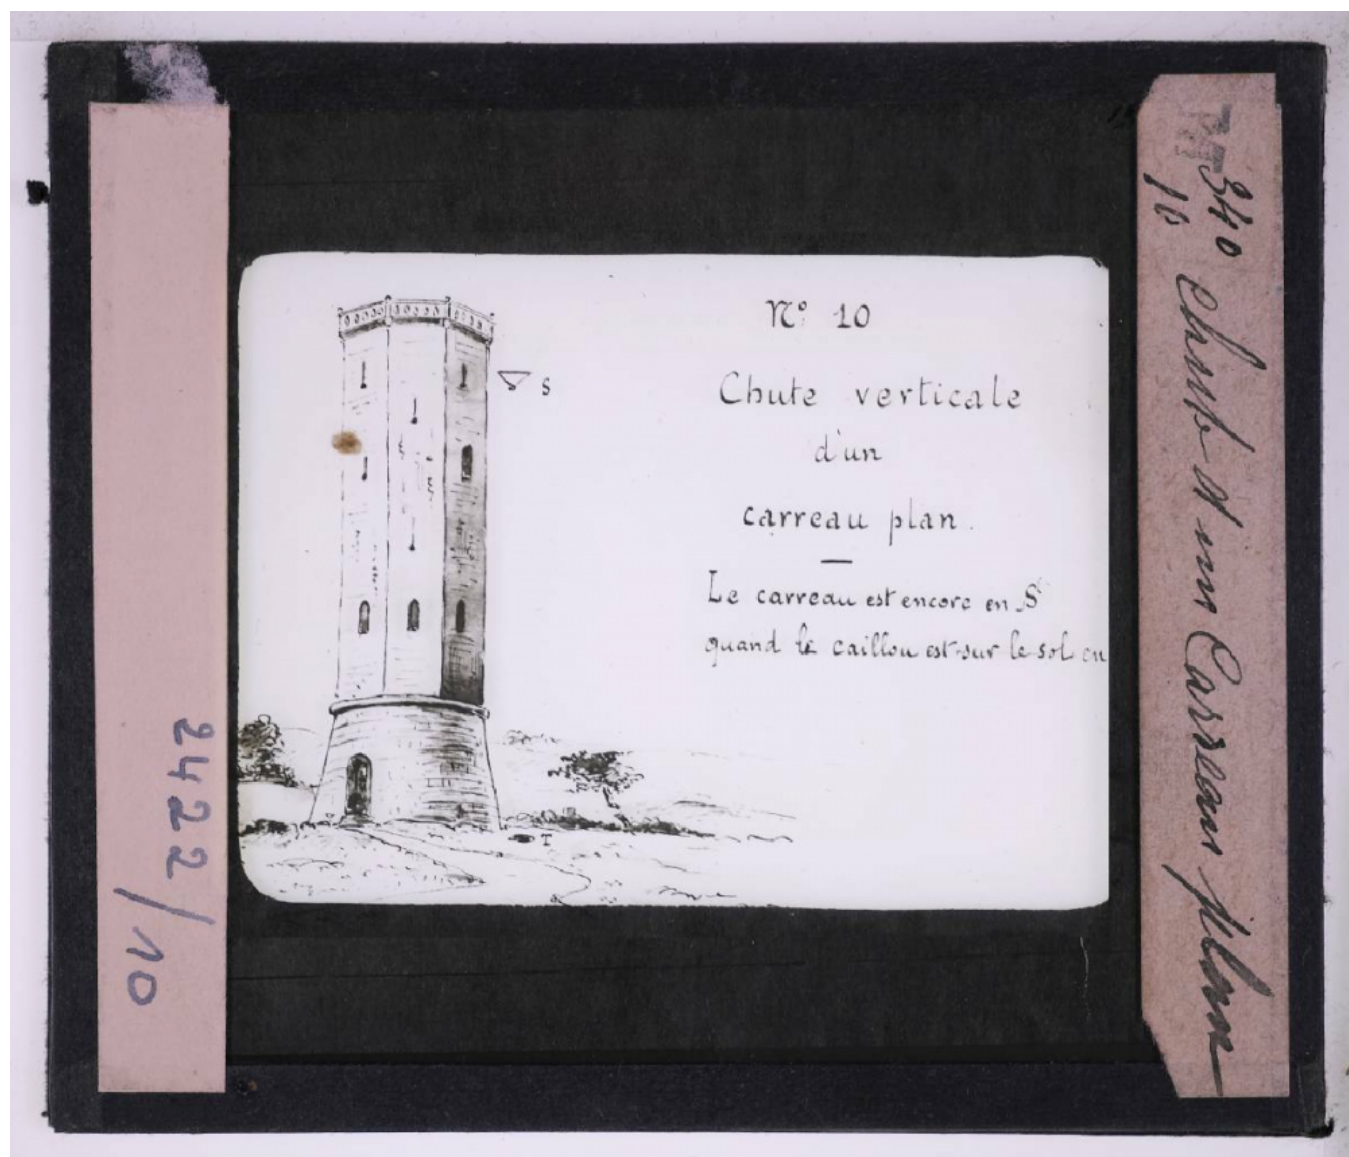 N° 10
Chute verticale
d'un
carreau plan.
Le carreau est encore en S
quand le caillou est sur le sol en
S
T
340
10
Chute d'un Carreau plan
2422/10